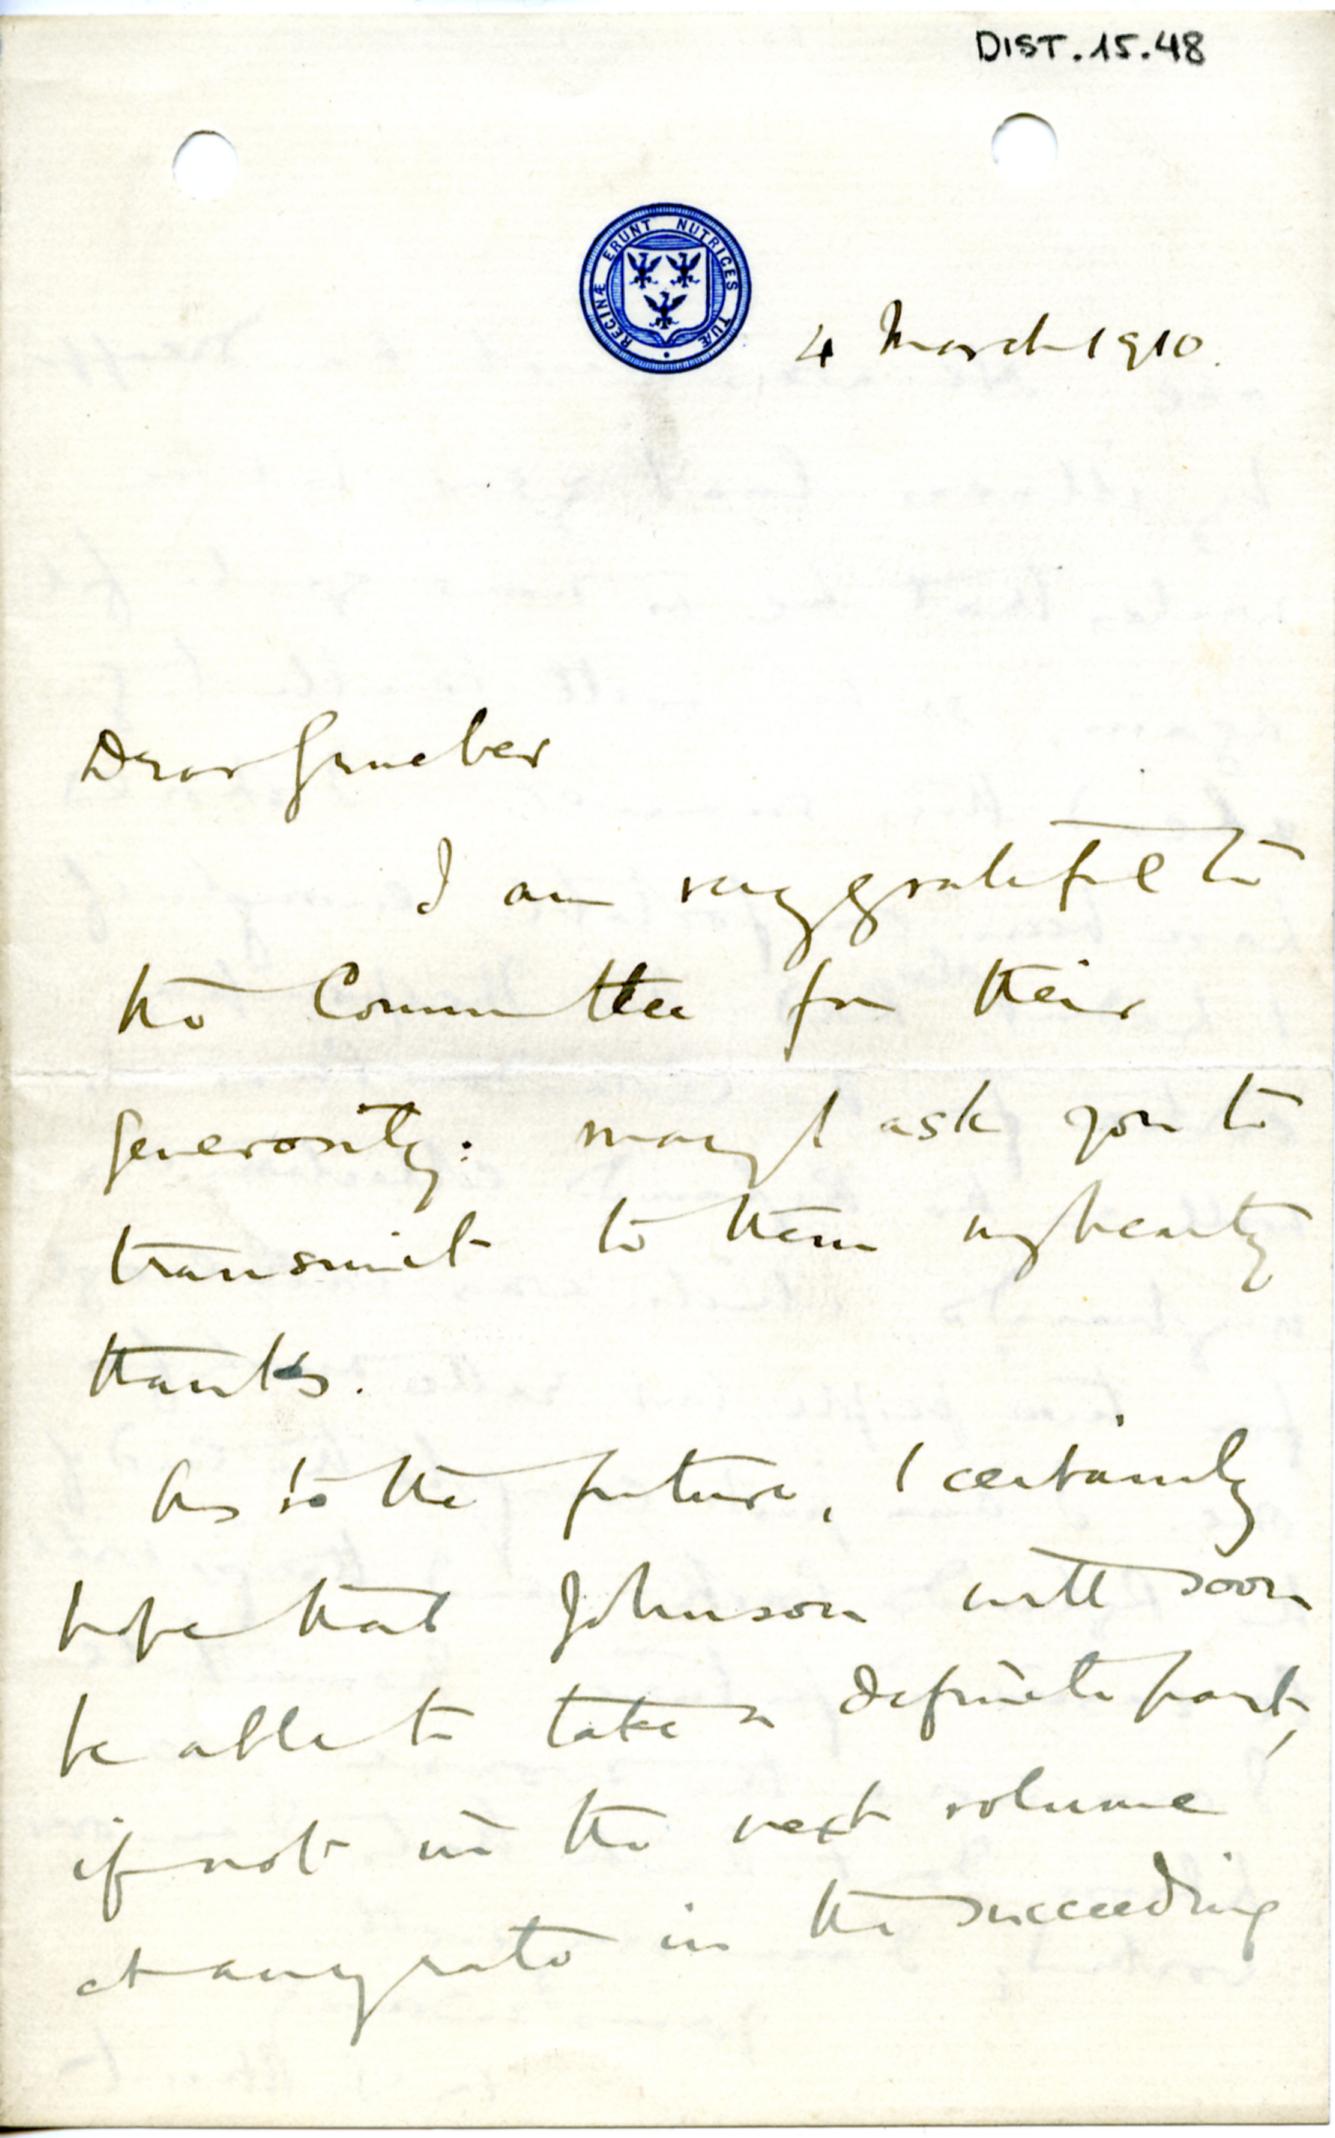 DIST.15.48
REGINÆ ERUNT NUTRICES TUÆ
4 March 1910.
Dear Grueber
I am very grateful to
the Committee for their
generosity: may I ask you to
transmit to them my hearty
thanks.
As to the future, I certainly
hope that Johnson will soon
be able to take a definite part,
if not in the next volume
at any rate in the succeeding